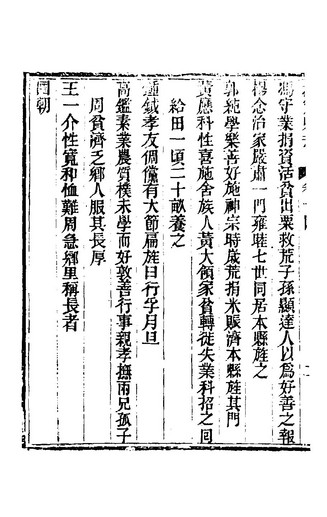 馮守業捐資活貧出粟救荒子孫顯達人以爲好善之報
楊念治家嚴肅一門雍睦七世同居本縣旌之
郭純學樂善好施神宗時歲荒捐米賑濟本縣旌其門
黃應科性喜施舍族人黃大領家貧轉徙失業科招之囘
給田一頃二十畝養之
鍾鉞孝友倜儻有大節扁旌曰行孚月旦
高鑑素業農質樸未學而好敦善行事親孝撫兩兄孤子
周貧濟乏鄉人服其長厚
國朝
王一介性寬和恤難周急鄉里稱長者